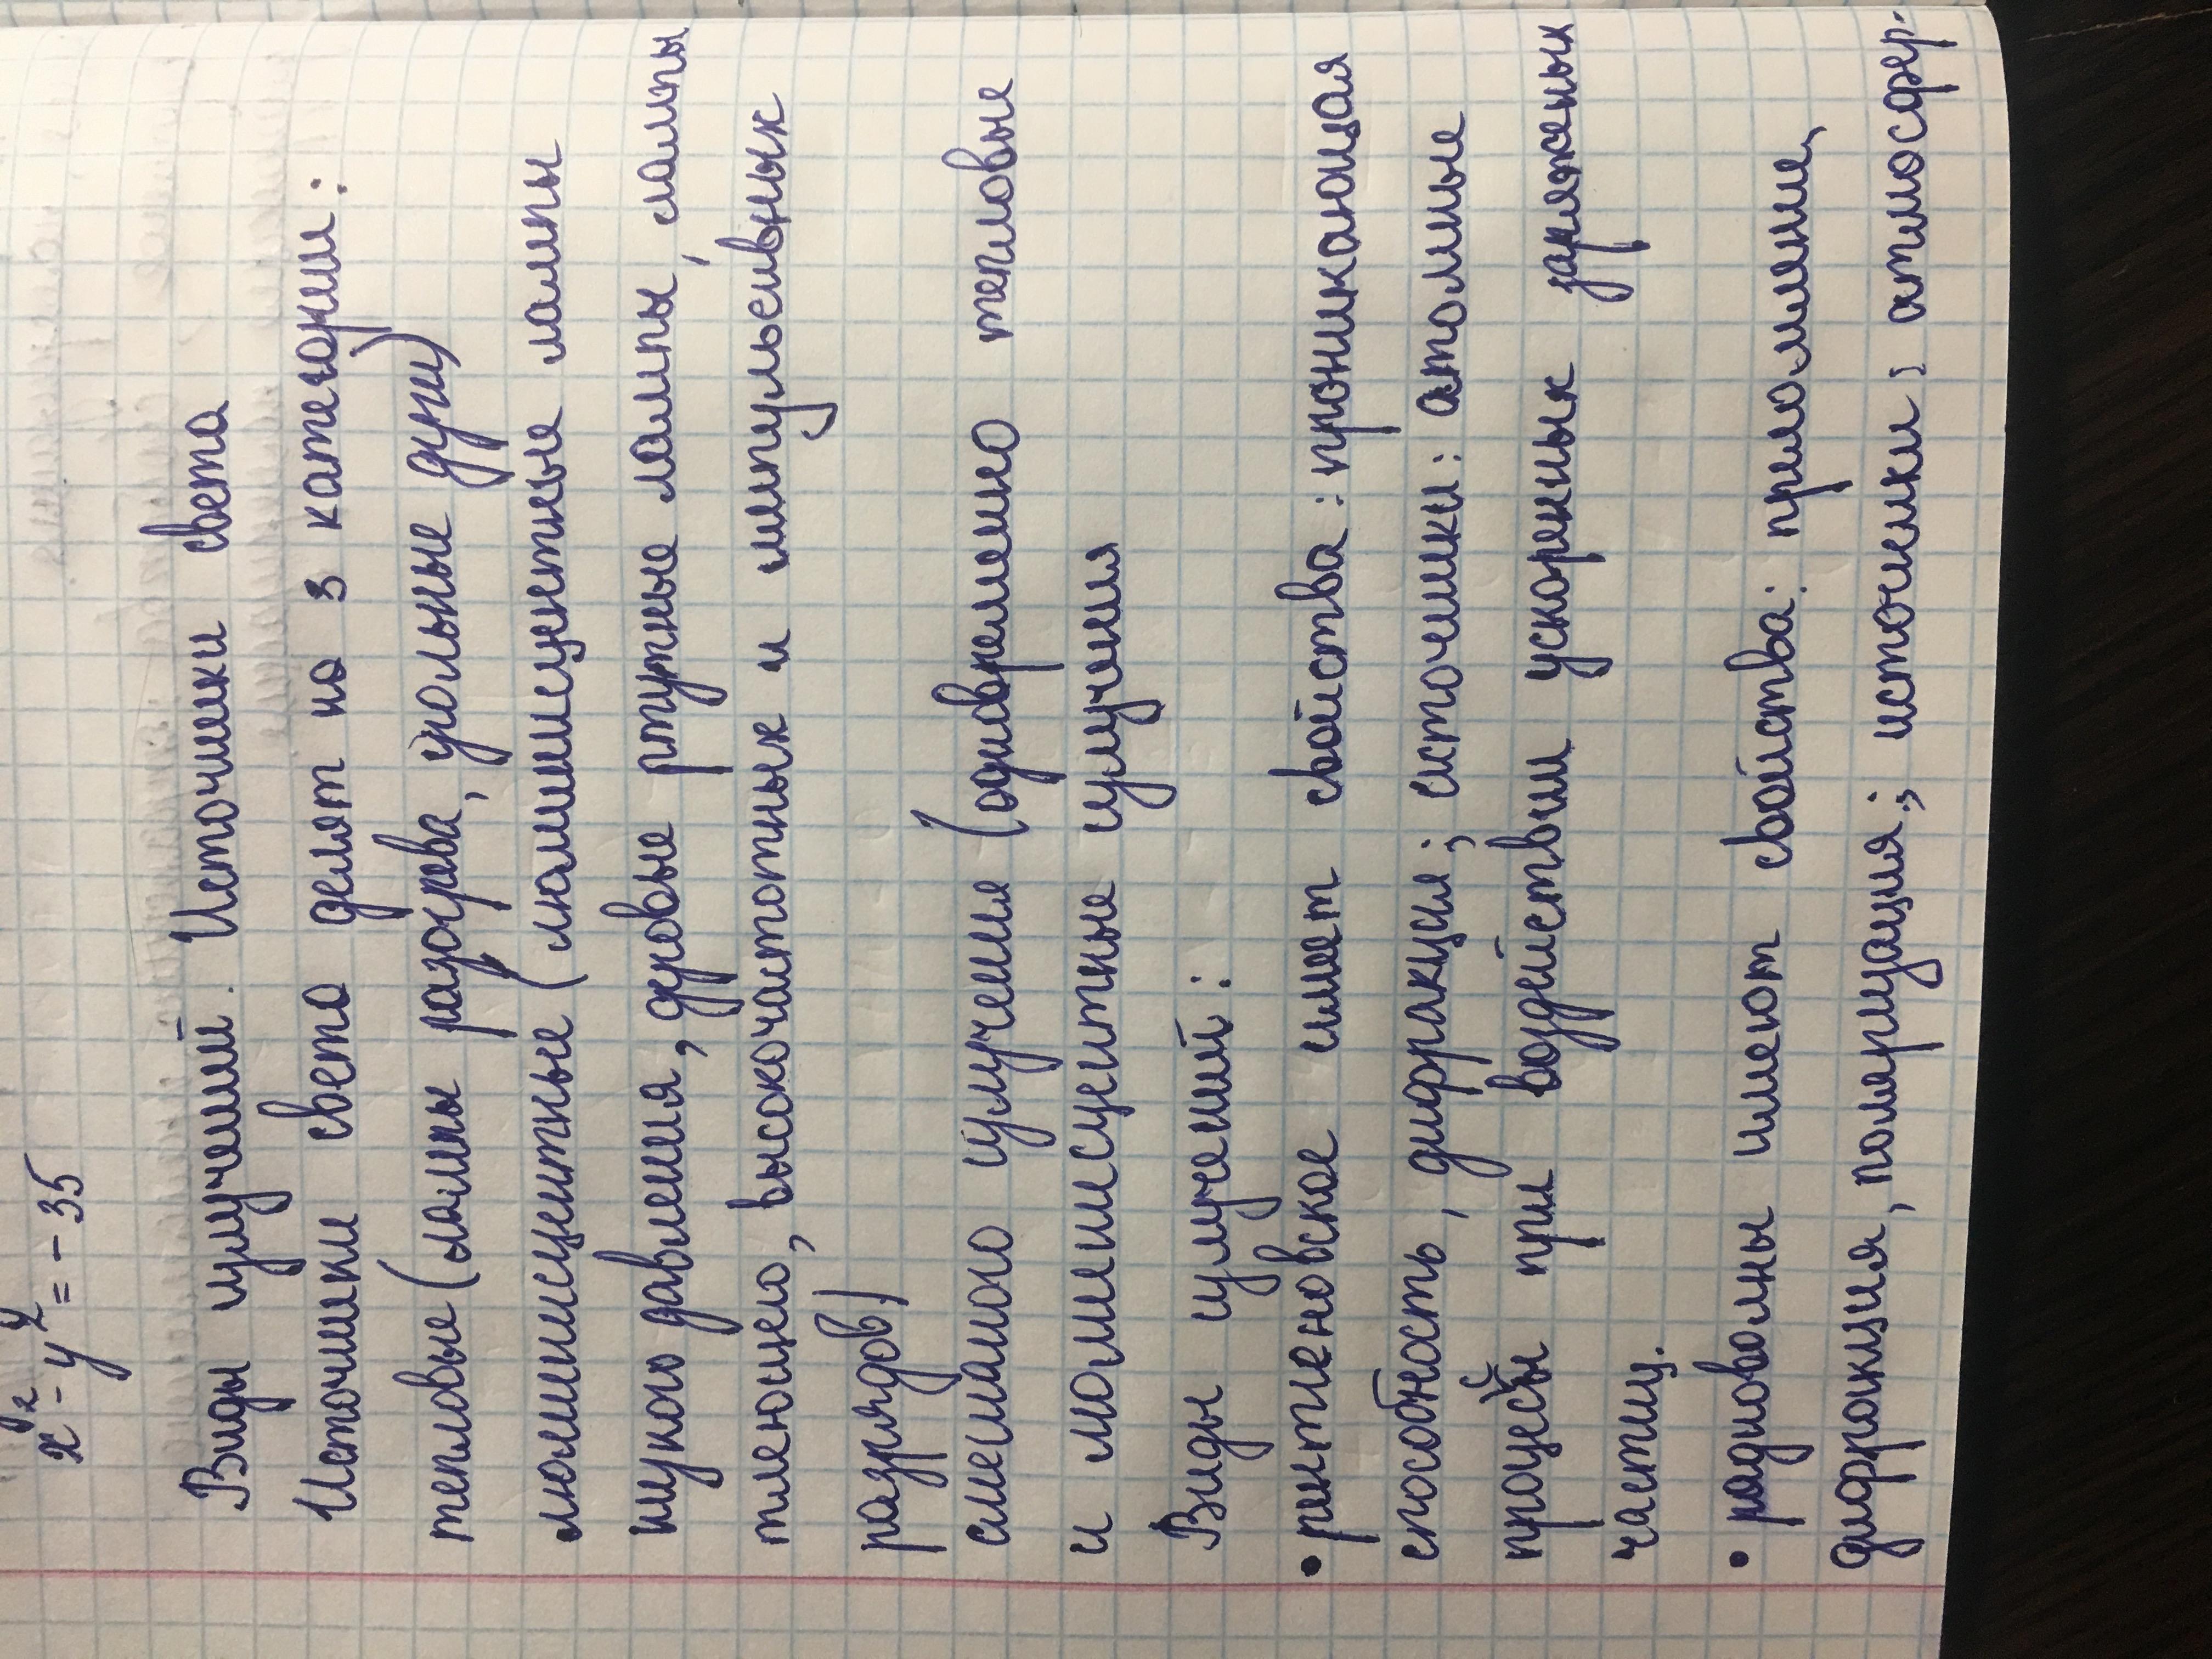 x² - y² = - 35
Виды излучений. Источники света
Источники света делят на 3 категории:
тепловые (лампы разогрева, угольные дуги)
люминисцентные (люминисцентные лампы
низкого давления, дуговые ртутные лампы, лампы
тлеющего, высокочастотных и импульсивных
разрядов)
смешаного излучение (одновременно тепловые
и люминисцентные излучения
Виды излучений:
• рентгеновское имеет свойства: проникающая
способность, дифракция; источники: атомные
процессы при воздействии ускоренных заряженых
частиц.
• радиоволны имеют свойства: преломление,
дифракция, поляризация; источники: атмосфер.